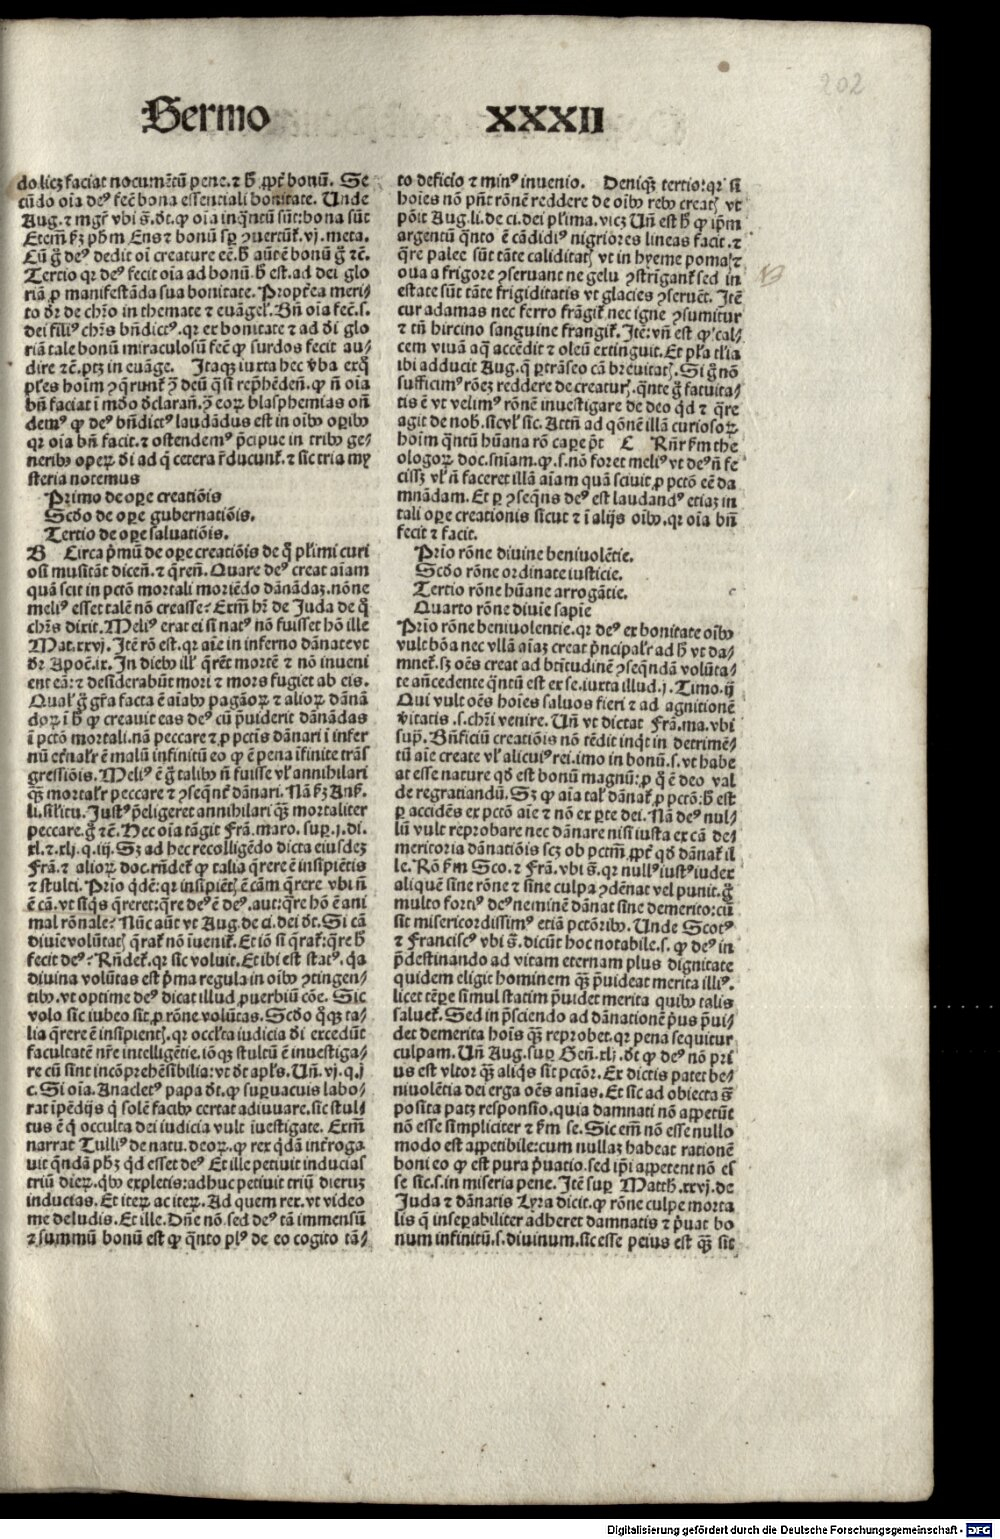 202
Sermo XXXII
do licꝫ faciat nocumētū pene. ⁊ ħ ꝓpt̄ bonū. Se
cūdo oīa deꝰ fecē bona essentiali bonitate. Unde
Aug. ⁊ mgr̄ vbi s̄. dt. ꝙ oīa inqͣntū sūt: bona sūt
Etem̄ kꝫ pħm Ens ⁊ bonū sꝑ ꝯuertūt᷑. vj. meta.
Cū g̊ deꝰ dedit oī creature eē. ħ autē bonū g̊ ⁊c̄.
Tertio qꝛ deꝰ fecit oīa ad bonū. ħ est. ad dei glo
riā ꝓ manifestāda sua bonitate. Propt̄ea meri⸗
to dr̄ de chr̄o in themate ⁊ euāgel̓. Bn̄ oīa fec̄. s.
dei filiꝰ chr̄s bn̄dictꝰ. qꝛ et bonitate ⁊ ad di glo
riā tale bonū miraculosū fec̄ ꝙ surdos fecit au⸗
dire ⁊c̄. ptꝫ in euāge. Itaqꝫ iuxta hec v̄ba exq̄
ples hoīm ꝯqͦrunt᷑ ꝯ̄ deū qͣsi rep̄hēden̄. ꝙ n̄ oīa
bn̄ faciat ī mō̄do declaran̄. ꝯ̄ eoꝝ blasphemias on̄
demꝰ ꝙ deꝰ bn̄dictꝰ laudādus est in oībꝰ oꝑibꝰ
qꝛ oīa bn̄ facit. ⁊ ostendemꝰ p̄cipue in tribꝰ ge⸗
neribꝰ operꝫ di ad q̄ cetera r̄ducunt᷑. ⁊ sic tria my
steria notemus
Primo de oꝑe creatiōis
Scd̄o de oꝑe gubernatiōis.
Tertio de oꝑe saluatiōis.
B Circa p̄mū de oꝑe creatiōis de q̊ pl̓imi curi
osi musitāt dicen̄. ⁊ q̄ren̄. Quare deꝰ creat aīam
quā scit in pctō mortali moriēdo dānādaꝫ. nōne
meliꝰ esset talē nō creasse? Exm̄ hr̄ de Juda de q̊
chr̄s dixit. Meliꝰ erat ei si natꝰ nō fuisset hō ille
Mat. xxvj. Itē rō est. qꝛ aīe in inferno dānatevt
dr̄ Apoc̄. ix. In diebꝰ ill̓ q̄rēt mortē ⁊ nō inueni
ent eā: ⁊ desiderabūt mori ⁊ mors fugiet ab eis.
Qual̓ g̊ gr̄a facta ē aīabꝰ pagāoꝝ ⁊ alioꝝ dānā
doꝝ ī ħ ꝙ creauit eas deꝰ cū p̄uiderit dānādas
ī pctō mortali. nā peccare ⁊ ꝓ pctīs dānari ī infer
nū etn̄alr̄ ē malū infinitū eo ꝙ ē pena īfinite trās
gressiōis. Meliꝰ ē g̊ talibꝰ n̄ fuisse vl̓ annihilari
qͣꝫ mortal̓r peccare ⁊ ꝯseqn̄t᷑ dānari. Nā kꝫ Ans.
li. silitu. Justꝰ p̄eligeret annihilari qͣꝫ mortaliter
peccare. g̊ ⁊c̄. Hec oīa tāgit Frā. maro. sup. j. di.
xl. ⁊ xlj. q. iij. Sꝫ ad hec recolligēdo dicta eiusdeꝫ
Frā. ⁊ alioꝝ doc. rn̄det᷑ ꝙ talia q̄rere ē insipiētis
⁊ stulti. Prīo qͥdē: qꝛ insipiēt̄ ē cām q̄rere vbi n̄
ē cā. vt siqͥs q̄reret: qͣre deꝰ ē deꝰ. aut: qͣre hō ē ani
mal rōnale? Nūc aūt vt Aug. de ci. dei dt. Si cā
diuīe volūtatꝭ q̄rat᷑ nō īuenit᷑. Et iō si q̄rat᷑: qͣre ħ
fecit deꝰ? Rn̄det᷑. qꝛ sic voluit. Et ibi est statꝰ. qͥa
diuina volūtas est p̄ma regula in oībꝰ ꝯtingen⸗
tibꝰ. vt optime deꝰ dicat illud ꝓuerbiū cōe. Sic
volo sic iubeo sit ꝓ rōne volūtas. Scd̄o qͣqꝫ ta⸗
lia q̄rere ē insipientꝭ. qꝛ occl̓ta iudicia di excedūt
facultatē nr̄e intelligētie. iōqꝫ stultū ē inuestiga⸗
re cū sint incōprehēsibilia: vt dt apl̓s. Un̄. vj. q. j
c. Si oīa. Anacletꝰ papa dt. ꝙ supuacuis labo⸗
rat īpēdijs qͥ solē facibꝰ certat adiuuare. sic stul⸗
tus ē qͥ occulta dei iudicia vult iuestigate. Exm̄
narrat Tulliꝰ de natu. deoꝝ. ꝙ rex qͥdā int̄roga
uit qͣndā pħꝫ qͥd esset deꝰ Et ille petiuit inducias
triū dieꝝ. qͥbꝰ expletis: adhuc petiuit triū dieruꝫ
inducias. Et iteꝝ ac iteꝝ. Ad quem rex. vt video
me deludis. Et ille. Dn̄e nō. sed deꝰ tā immensū
⁊ summū bonū est ꝙ qͣnto plꝰ de eo cogito tā⸗
to deficio ⁊ minꝰ inuenio. Deniqꝫ tertio: qꝛ si
hoīes nō pn̄t rōnē reddere de oībꝰ rebꝰ creatꝭ vt
pōit Aug. li. de ci. dei pl̓ima. vicꝫ Un̄ est ħ ꝙ ip̄m
argentū qͣnto ē cādidiꝰ nigriores lineas facit. ⁊
qͣre palee sūt tāte caliditatꝭ vt in hyeme poma ⁊
oua a frigore ꝯseruant ne gelu ꝯstrīgant᷑ sed in
estate sūt tāte frigiditatis vt glacies ꝯseruēt. Itē
cur adamas nec ferro frāgit᷑. nec igne ꝯsumitur
⁊ tn̄ hircino sanguine frangit᷑. Itē: vn̄ est ꝙ cal⸗
cem viuā aq̄ accēdit ⁊ oleū extinguit. Et pl̓a tl̓ia
ibi adducit Aug. q̄ ꝑtrāseo cā breuitatꝭ. Si g̊ nō
sufficimꝰ rōeꝫ reddere de creaturꝭ. qͣnte g̊ fatuita⸗
tis ē vt velimꝰ rōnē inuestigare de deo qͥd ⁊ qͣre
agit de nob̓. sic vl̓ sic. Attn̄ ad qōnē illā curiosoꝝ
hoīm qͣntū hūana rō caꝑe pōt ⸿ Rn̄r km̄ the
ologoꝝ doc. sniam. ꝙ. s. nō foret meliꝰ vt deꝰ n̄ fe
cissꝫ vl̓ n̄ faceret illā aīam quā sciuit ꝓ pctō eē da
mnādam. Et ꝑ ꝯseqn̄s deꝰ est laudandꝰ etiaꝫ in
tali oꝑe creationis sicut ⁊ ī alijs oībꝰ. qꝛ oīa bn̄
fecit ⁊ facit.
Prīo rōne diuine beniuolētie.
Scd̄o rōne ordinate iusticie.
Tertio rōne hūane arrogātie.
Quarto rōne diuīe sapīe
Prīo rōne beniuolentie. qꝛ deꝰ ex bonitate oībꝰ
vult bōa nec vllā aīaꝫ creat p̄ncipal̓r ad ħ vt da⸗
mnet᷑. sꝫ oēs creat ad btītudinē ꝯseqn̄dā volūta⸗
te an̄cedente qͣntū est ex se. iuxta illud. j. Timo. ij
Qui vult oēs hoīes saluos fieri ⁊ ad agnitionē
v̄itatis. s. chr̄i venire. Un̄ vt dictat Frā. ma. vbi
sup̄. Bn̄ficiū creatiōis nō tēdit inqͥt in detrimē⸗
tū aīe create vl̓ alicuiꝰ rei. imo in bonū. s. vt habe
at esse nature qd̓ est bonū magnū: ꝓ q̊ ē deo val
de regratiandū. Sꝫ ꝙ aīa tal̓ dānat᷑ ꝓ pctō: ħ est
ꝑ accidēs ex pctō aīe ⁊ nō ex ꝑte dei. Nā deꝰ nul⸗
lū vult reprobare nec dānare nisi iusta ex cā de⸗
meritoria dānatiōis scꝫ ob pctm̄. ꝓpt̄ qd̓ dānat᷑ il
le. Rō km̄ Sco. ⁊ Frā. vbi s̄. qꝛ nullꝰ iustꝰ iudex
aliquē sine rōne ⁊ sine culpa ꝯdēnat vel punit. g̊
multo fortiꝰ deꝰ neminē dānat sine demerito: cū
sit misericordissimꝰ etiā pctōribꝰ. Unde Scotꝰ
⁊ Franciscꝰ vbi s̄. dicūt hoc notabile. s. ꝙ deꝰ in
p̄destinando ad vitam eternam plus dignitate
quidem eligit hominem qͣꝫ p̄uideat merita illiꝰ.
licet tēꝑe simul statim p̄uidet merita quibꝰ talis
saluet᷑. Sed in p̄sciendo ad dānationē pͥus p̄ui⸗
det demerita hoīs qͣꝫ reprobet. qꝛ pena sequitur
culpam. Un̄ Aug. sup̄ Gen̄. xlj. dt ꝙ deꝰ nō pri
us est vltor qͣꝫ aliqͥs sit pctōr. Ex dictis patet be⸗
niuolētia dei erga oēs animas. Et sic ad obiecta s̄
posita patꝫ responsio. quia damnati nō appetūt
nō esse simpliciter ⁊ km̄ se. Sic em̄ nō esse nullo
modo est appetibile: cum nullaꝫ habeat rationē
boni eo ꝙ est pura p̄uatio. sed ip̄i appetent nō es
se sic. s. in miseria pene. Itē sup̄ Matth. xxvj. de
Juda ⁊ dānatis Lyra dicit. ꝙ rōne culpe morta
lis q̄ inseꝑabiliter adheret damnatis ⁊ p̄uat bo
num infinitū. s. diuinum. sic esse peius est qͣꝫ sic
Digitalisierung gefördert durch die Deutsche Forschungsgemeinschaft - DFG